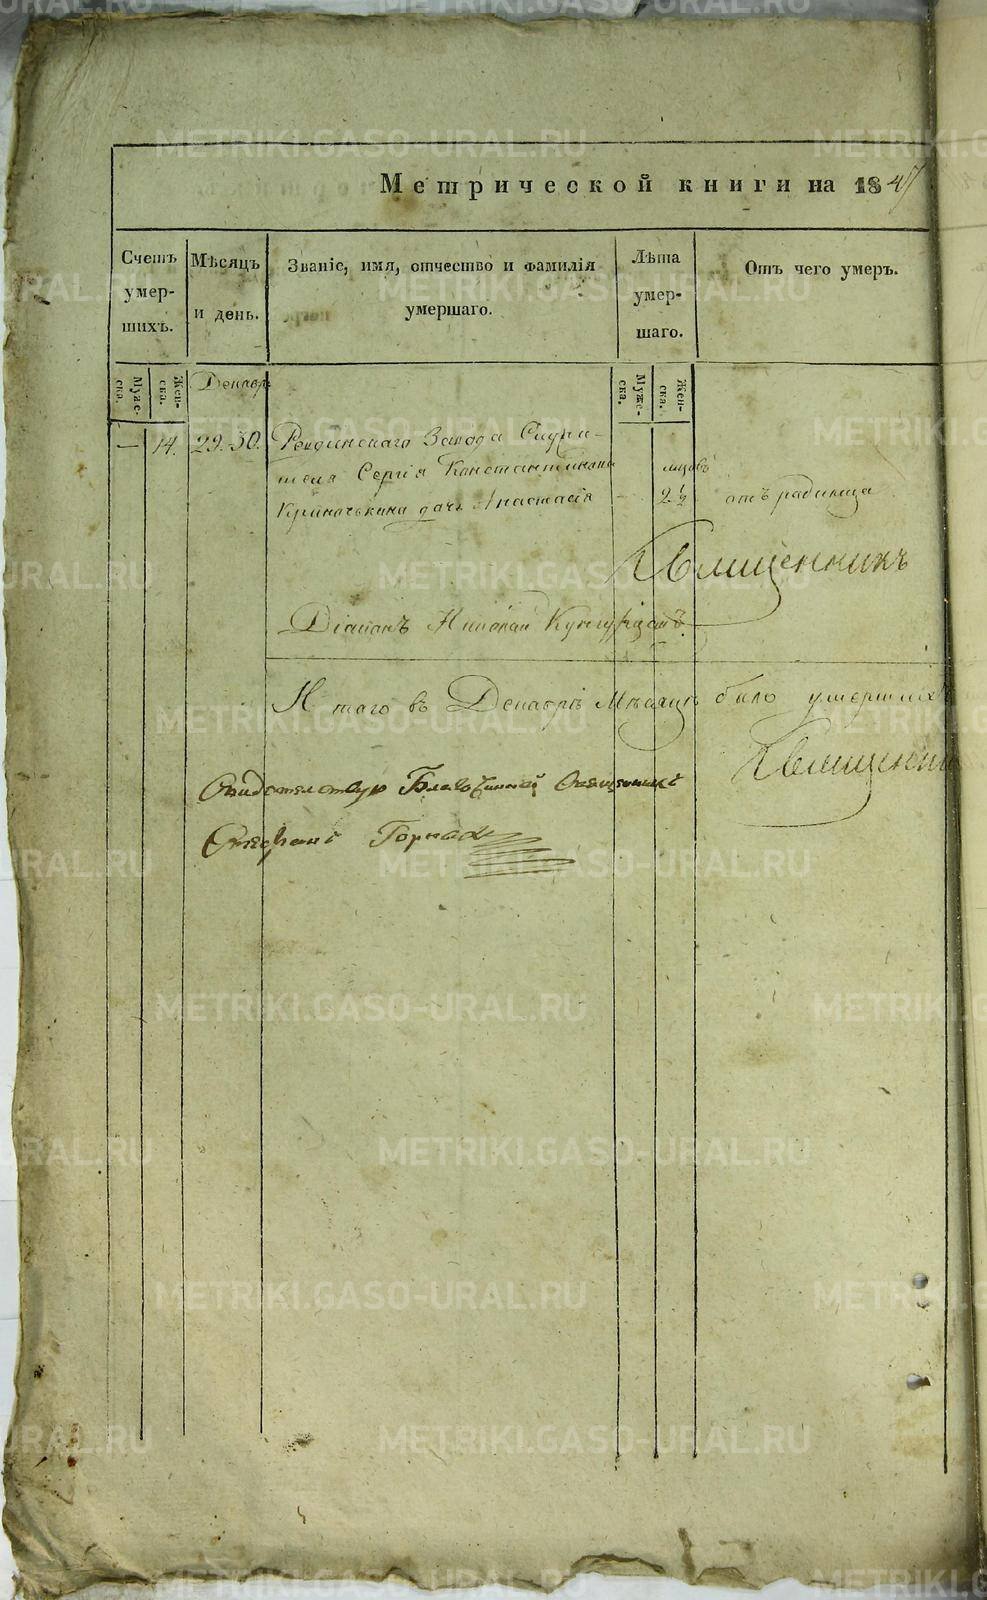 Метрической книги на 1847
Счетъ умершихъ.
Мѣсяцъ и день.
Званіе, имя, отчество и фамилія умершаго.
Лѣта умершаго.
Отъ чего умеръ.
Мужеска.
Женска.
Декабр
Мужеска.
Женска.
— 14. 29. 30. Ревдинскаго Завода Служи-
теля Сергія Константинова мцовъ
дочь Анастасія - 2 ½ отъ родимца
Священникъ
Діаконъ Николай
Итого въ Декабрѣ Мѣсяцѣ было умершихъ
Священни
Свидетельствую Благочинный Священникъ
Стефанъ
METRIKI.GASO-URAL.RU